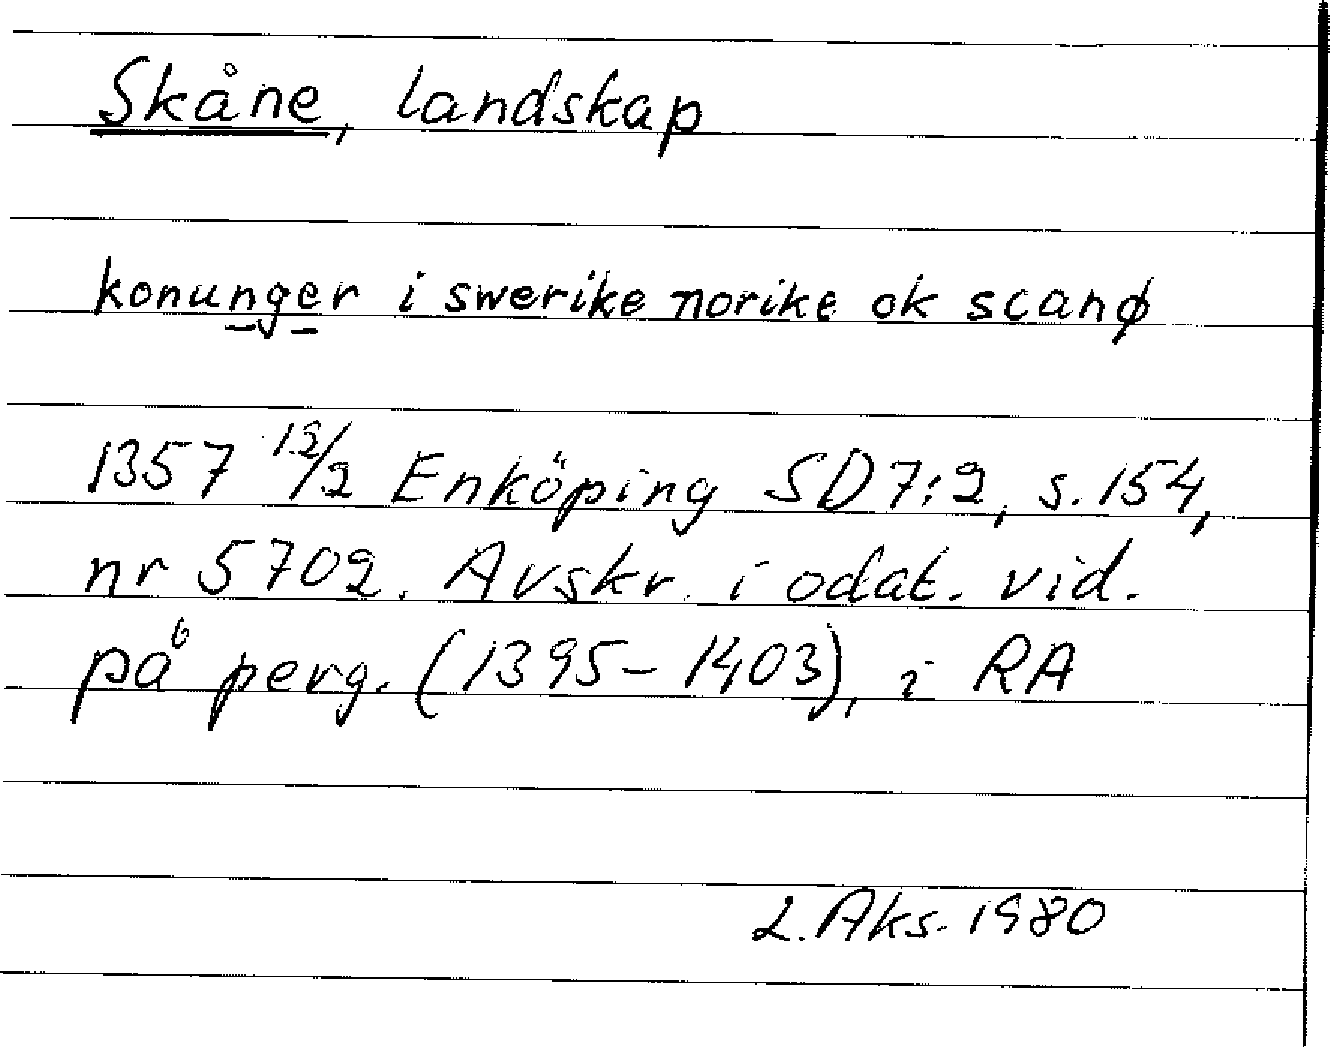 Skåne, landskap
konunger i swerike norike ok scanø
1357 12/2 Enköping SD 7:2, s. 154,
nr 5702. Avskr. i odat. vid.
på perg. (1395-1403), i RA
L. Aks. 1980